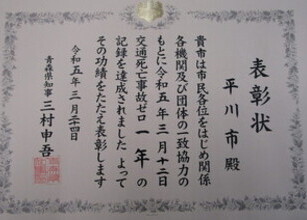 表彰状
平川市殿
貴市は市民各位をはじめ関係
各機関及び団体の一致協力の
もとに令和五年三月十二日
交通死亡事故ゼロ一年の
記録を達成されました よって
その功績をたたえ表彰します
令和五年三月二四日
青森県知事 三村申吾